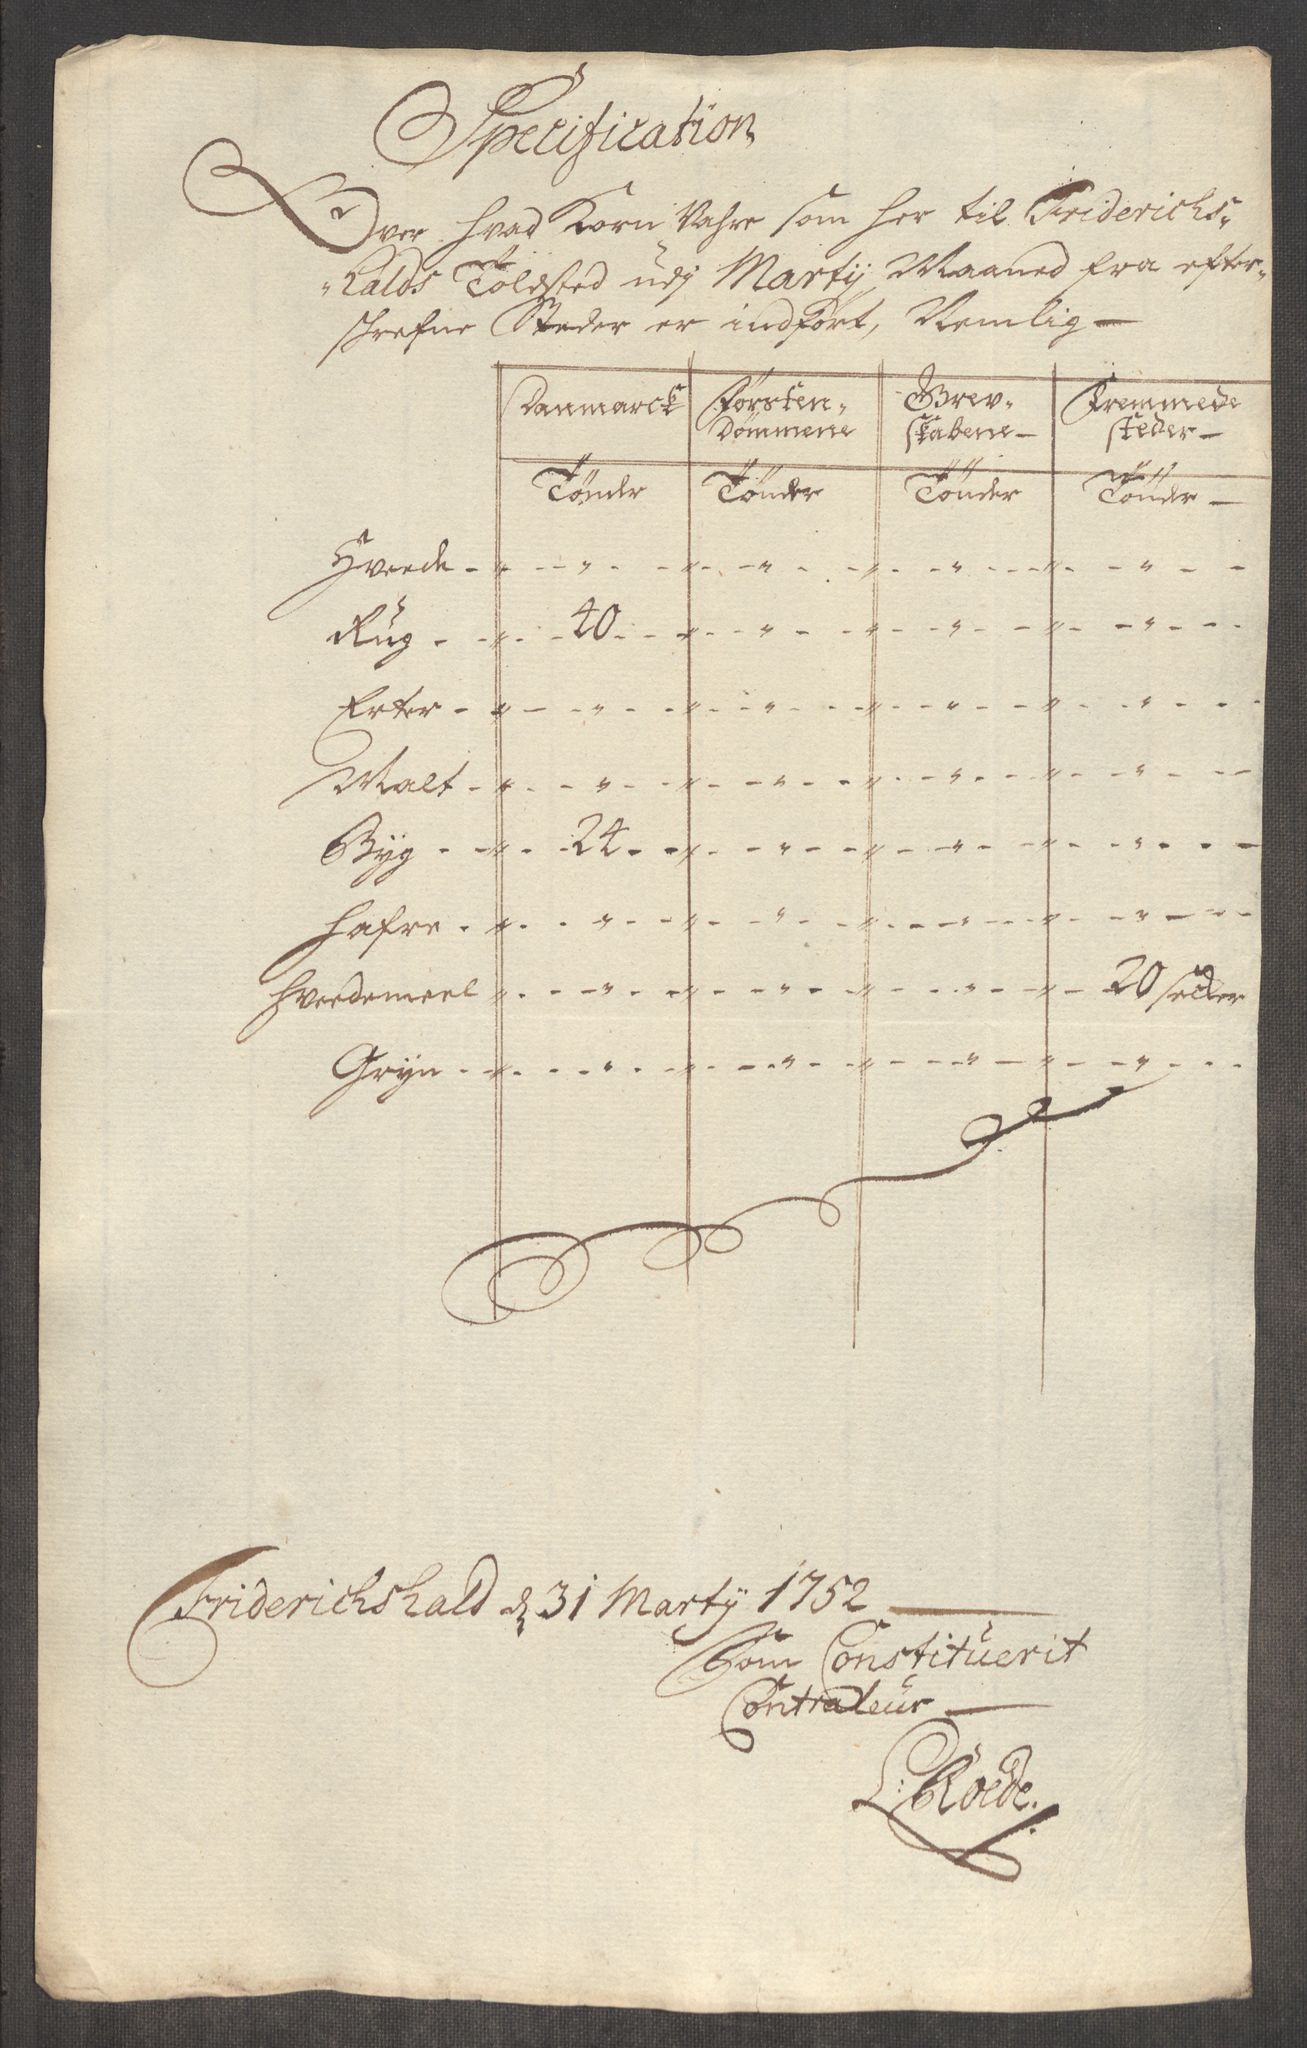 Specification
Over hvad Korn Vahre som her til Friderichs-
halds Toldsted udj Martij Maaned fra efter-
schrefne Steder er indført, Nemlig —
Danmarck Førsten- Grev- Fremmede
Dømmene skabene — steder —
Tønder Tønder Tønder Tønder —
Hvede - " - " - " - "
Rug - 40 - " - " - "
Erter - " - " - " - "
Malt - " - " - " - "
Byg - 24 - " - " - "
Hafre - " - " - " - "
Hvedemeel - " - " - " - 20 secker
Gryn - " - " - " - "
Friderichshald d 31 Martij 1752 —
Som Constituerit
Contraleur —
L: Roede.